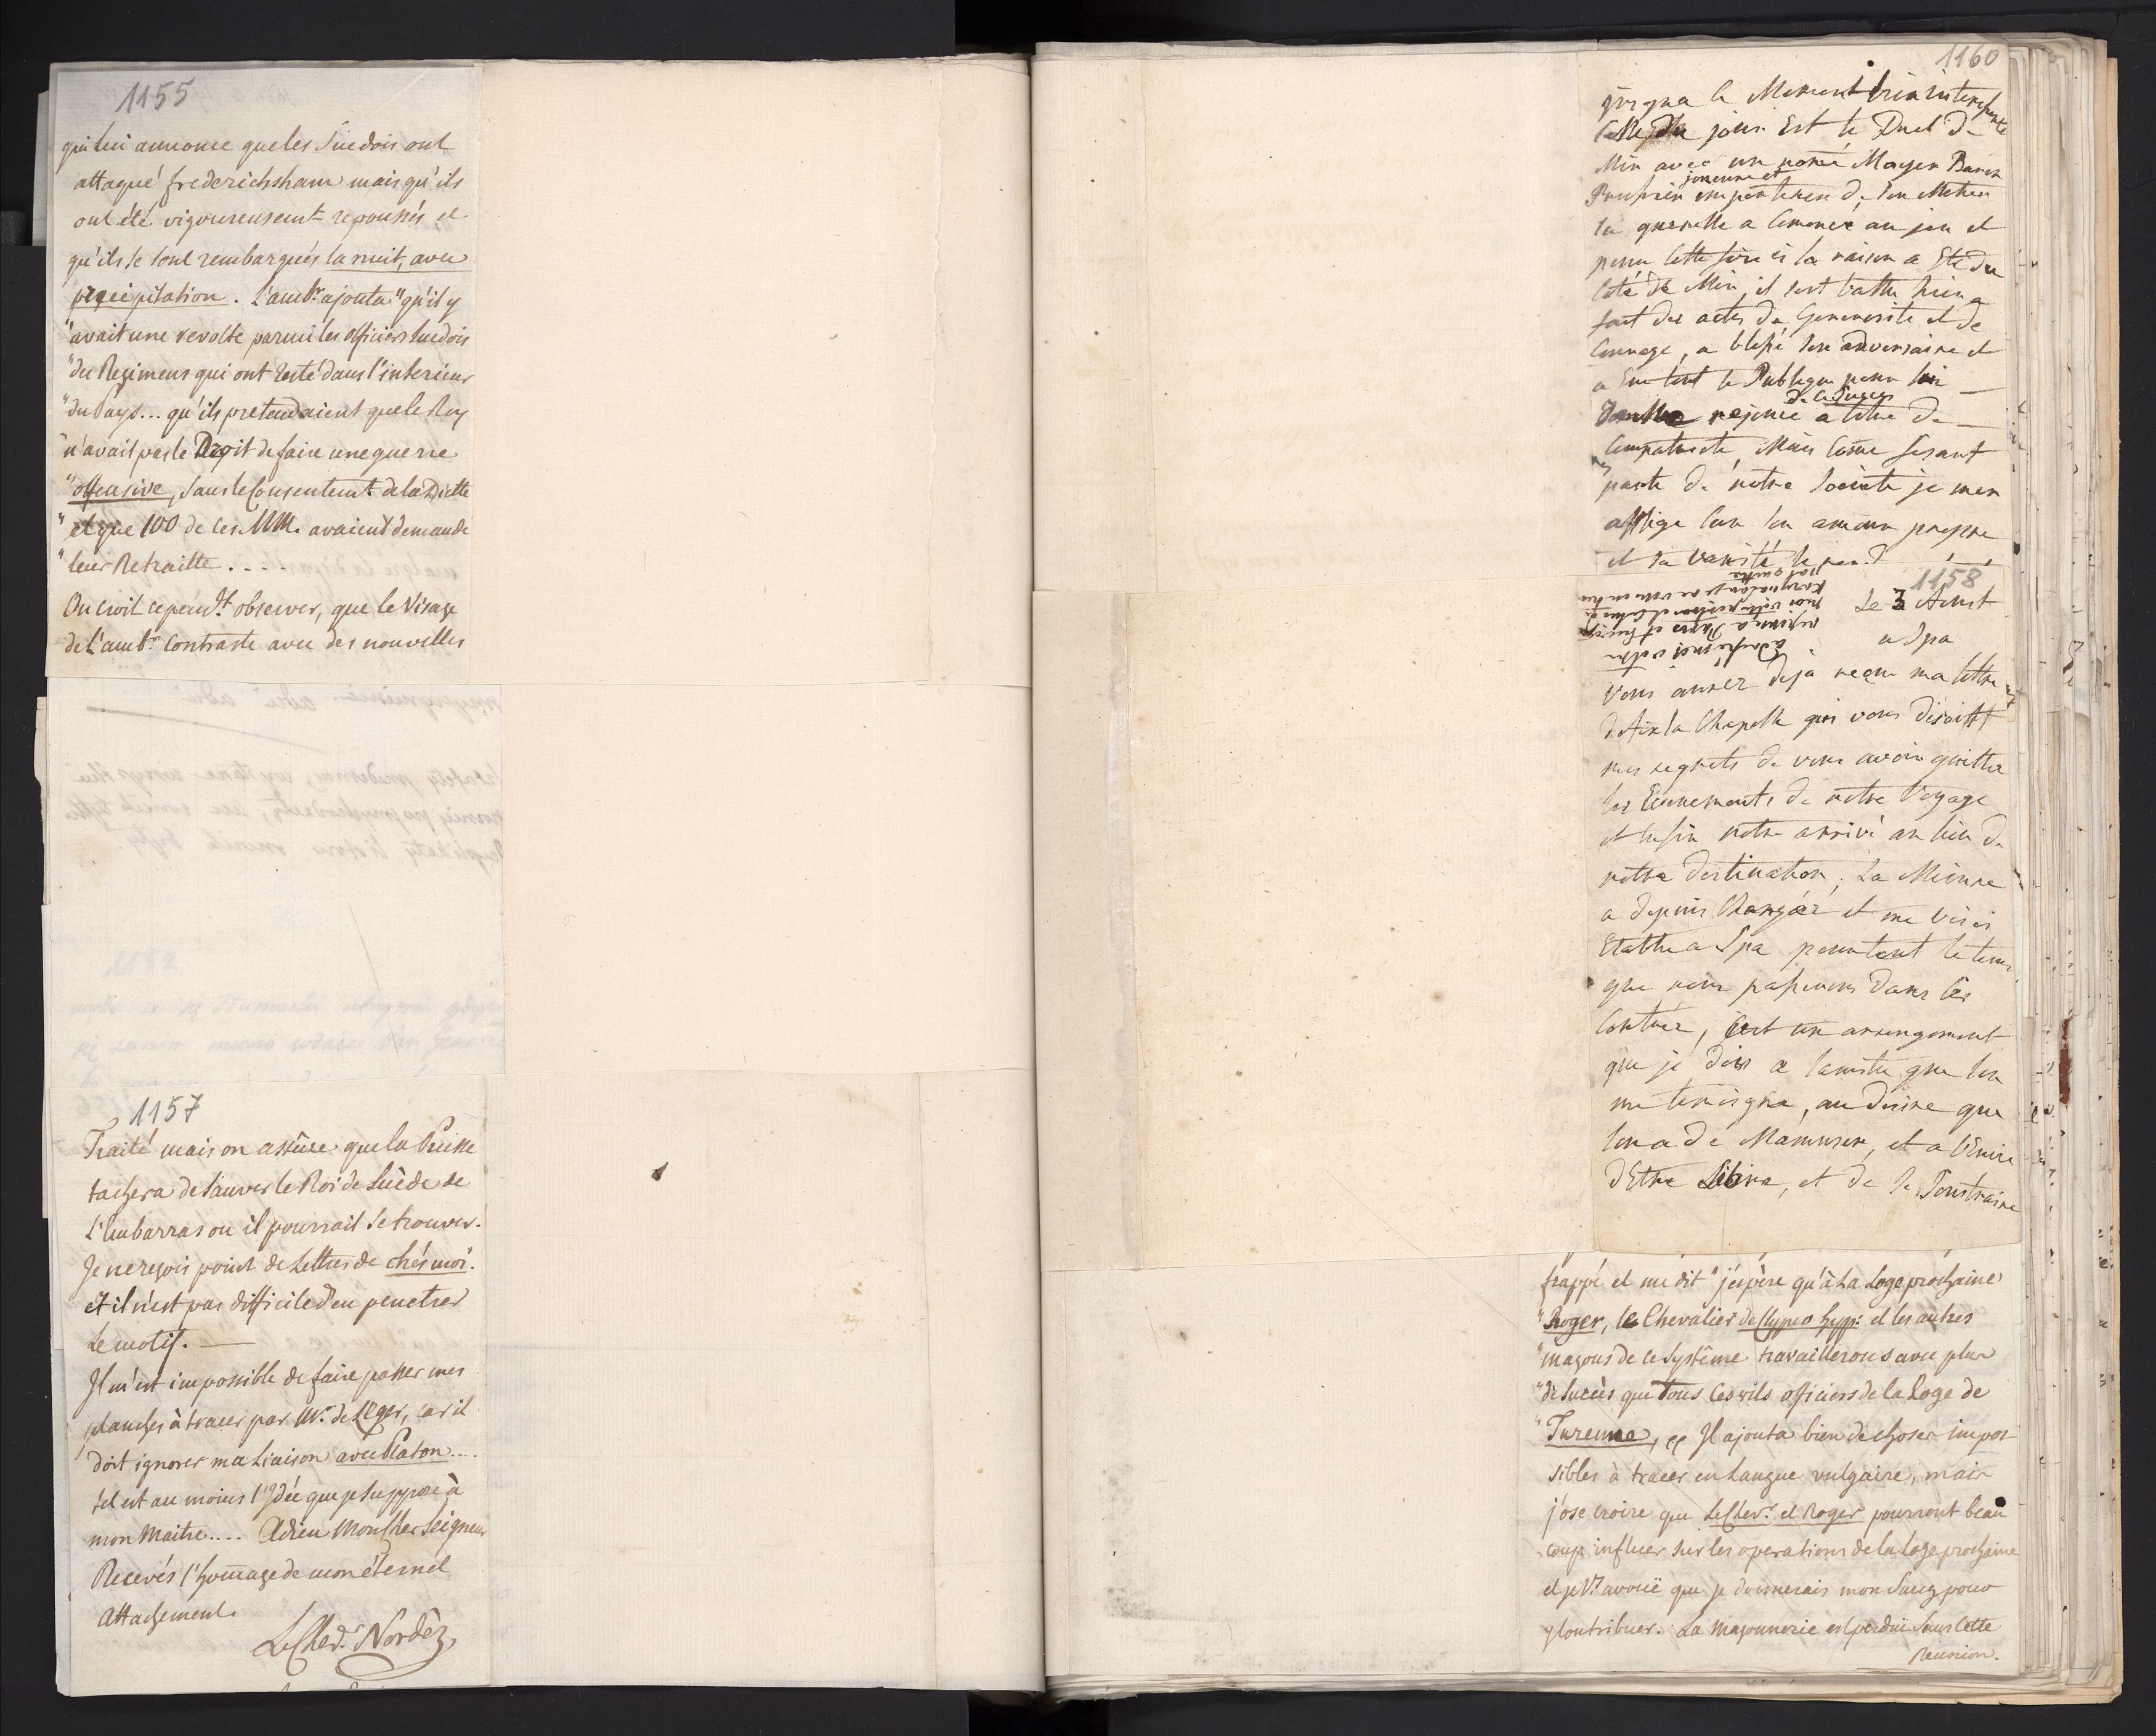 1155
qui lui annonce que les Suedois ont
attaqué frederichsham mais qu'ils
ont été vigoureusemt repoussés, et
qu'ils se sont rembarqués la nuit, avec
precipitation. L'ambr. ajouta "qu'il y
"avait une revolte parmi les officiers suedois
"du Regimens qui ont resté dans l'interieur
"du Pays... qu'ils pretendaient que le Roy
"n'avait pas le Droit de faire une guerre
"offensive, sans le Consentemt. de la Diette
"et que 100 de ces MM. avaient demandé
"leur Retraitte....
On croit cependt. observer, que le Visage
de L'ambr. Contraste avec des nouvelles
1157
Traité mais on assûre que la Prusse
tachera de sauver le Roi de Suède de
l'Embarras ou il pourrait se trouver.
Je ne reçois point de Lettres de chés moi.
et il n'est pas difficile d'en penetrer
Le motif. —
Il m'est impossible de faire passer mes
planches à tracer par Mr. de Leger, car il
doit ignorer ma Liaison avec Platon....
tel est au moins l'Idée que je suppose à
mon Maitre.... Adieu Mon Cher Seigneur
Recevés l'hommage de mon éternel
Attachement.
Le Cher. Nordèz,
1160
quegna le Moment bien interessante
Celle du jour Est le Duel de
Min avec un nomé Mayer Baron
Prussien joueur et de son Metier
la querelle a Comencé au jeu et
pour cette fois ci la raison a Eté du
Coté de Min, il s'est battu bien a
fait des actes de Generosité et de
Courage, a blessé son adversaire et
a Eu tout le Publique pour lui
de ce Succes
rejouie a titre de
Compatriote, Mais Come fesant
parte de notre Societe je men
afflige Car son amour propre
et sa vanité
1158
Le 3 Aoust
a Spa
Adressé moi votre
reponse a Paris et
Vous aurez deja reçu ma lettre
d'Aix la Chapelle qui vous disoit
mes regrets de vous avoir quitté
les Evenements de notre Voyage
et Enfin notre arrivé au lieu de
notre destination; La Mienne
a depuis Changéz et me voici
Etablie a Spa pour tout le tems
que nous passerons dans ces
Contrée, C'est un arrengement
que je dois a l'amitie que l'on
me temoigne, au desire que
l'on a de M'amuser, et a l'Envie
d'Etre Libre, et de se Soustraire
frappé et me dit "j'espère qu'à La Loge prochaine
"Roger, le Chevalier de Clypeo hypp: et les autres
"maçons de ce Systême travaillerons avec plus
"de succès que Tous Ces vils officiers de la Loge de
"Turenne, Il ajouta bien de choses impos-
sibles à tracer en Langue vulgaire, mais
j'ose croire que Le Cher. et Roger pourront beau
coup influer sur les operations de la Loge prochaine
et je Vs avouë que je donnerais mon Sang pour
y Contribuer. La Maçonnerie est perduë Sans Cette
Reunion.